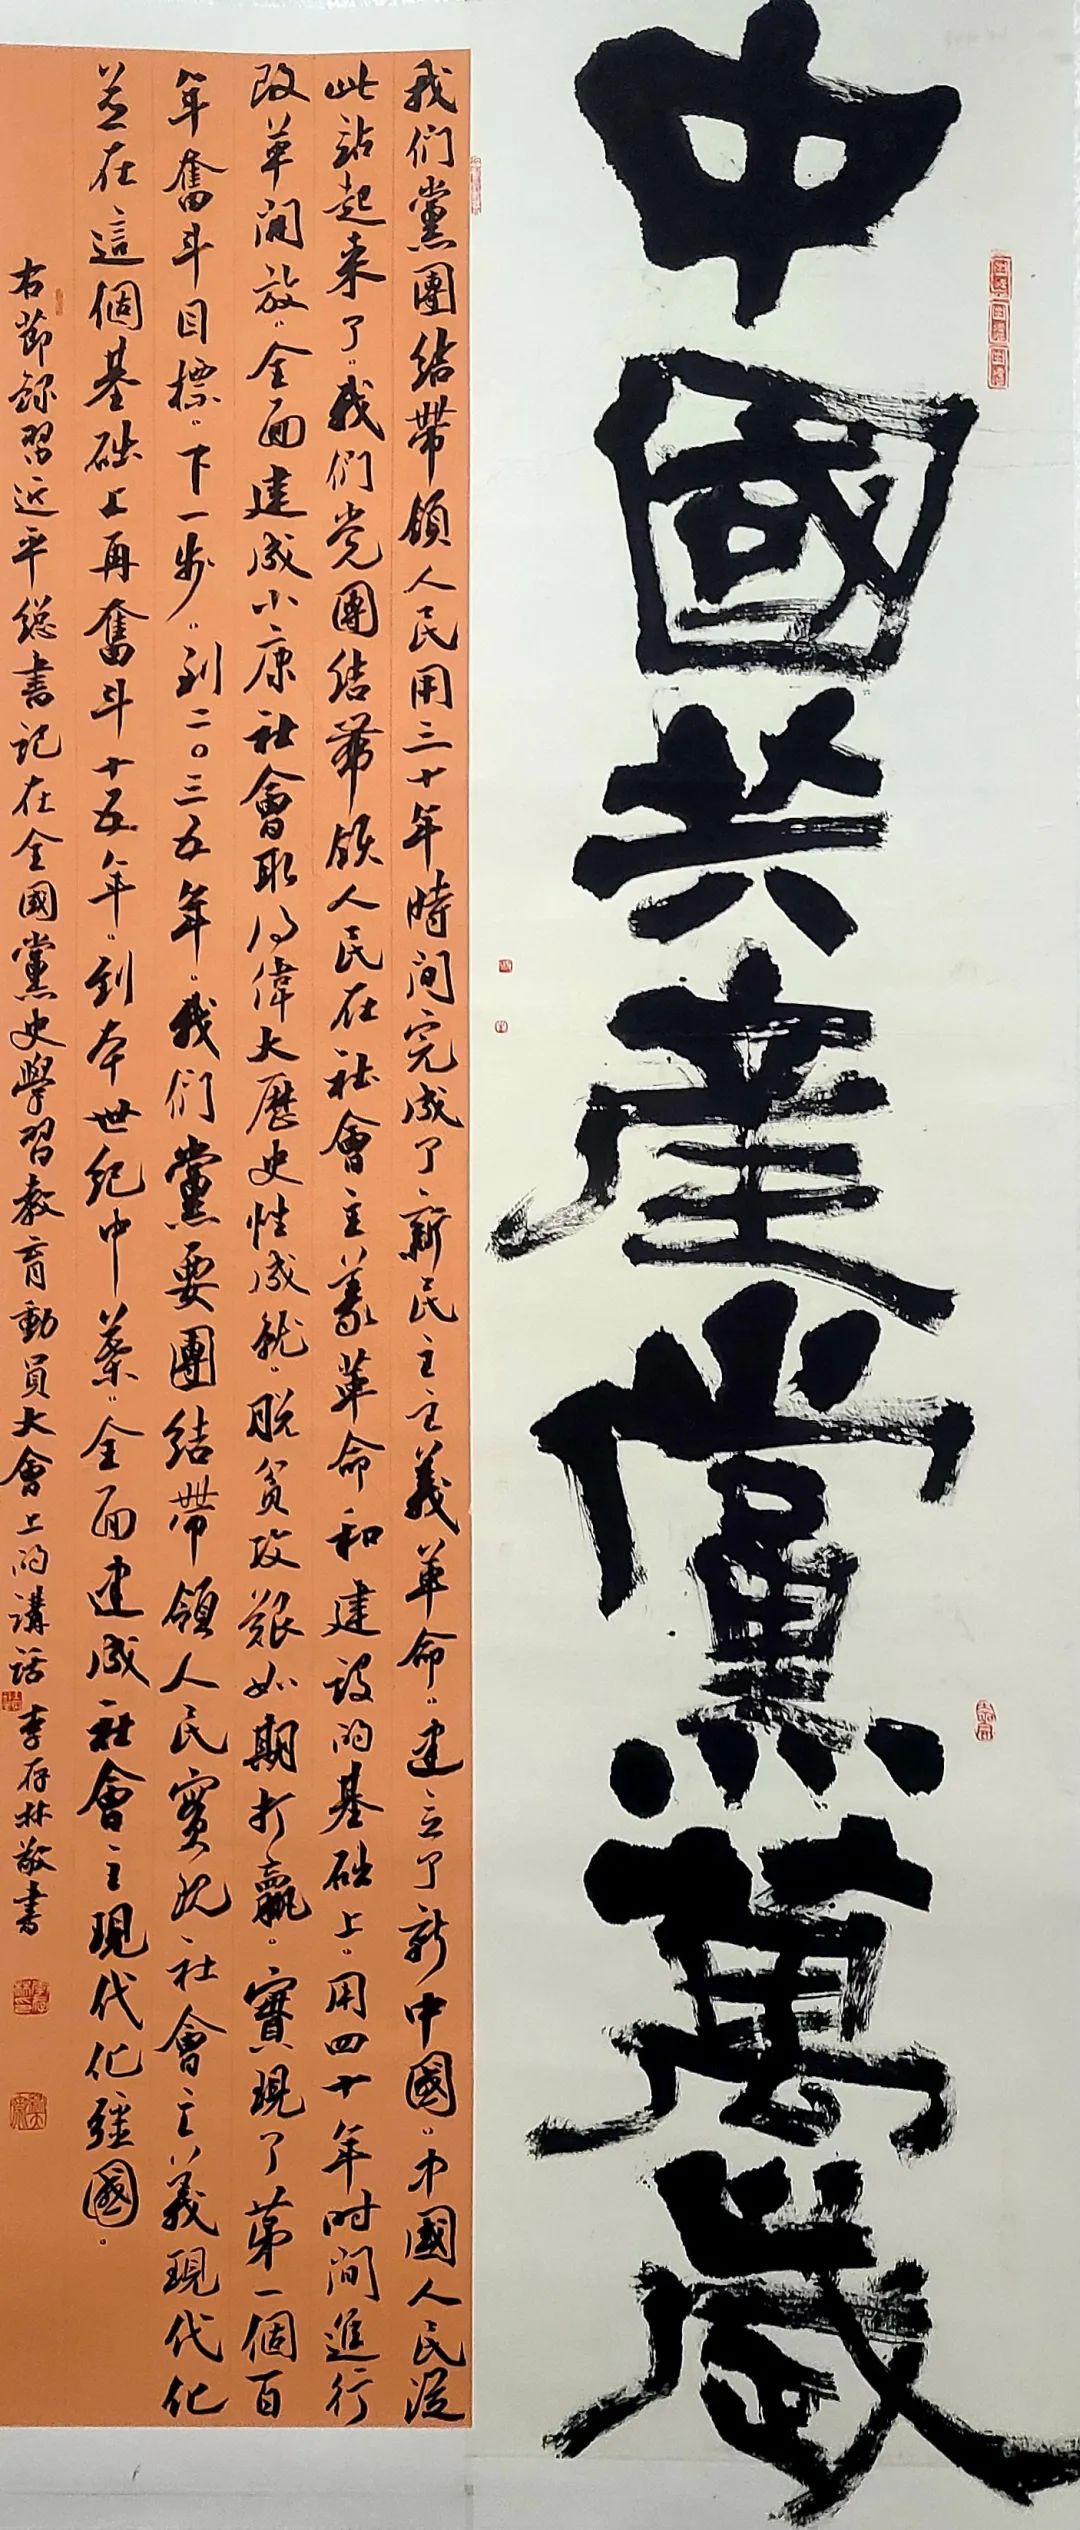 中國共產黨萬歲
我们黨團结帶領人民用三十年時间完成了新民主主義革命建立了新中國中國人民從
此站起来了我们党團结帶领人民在社會主義革命和建设的基础上用四十年时间進行
改革開放全面建成小康社會取得偉大歷史性成就脱贫攻艱如期打贏實現了苐一個百
年奮斗目標下一步到二〇三五年我们黨要團结帶領人民實現社會主義現代化
並在這個基础上再奮斗十五年到本世纪中葉全面建成社會主現代化強國
右節録習近平総書记在全國黨史學習教育動員大會上的講话李存林敬書